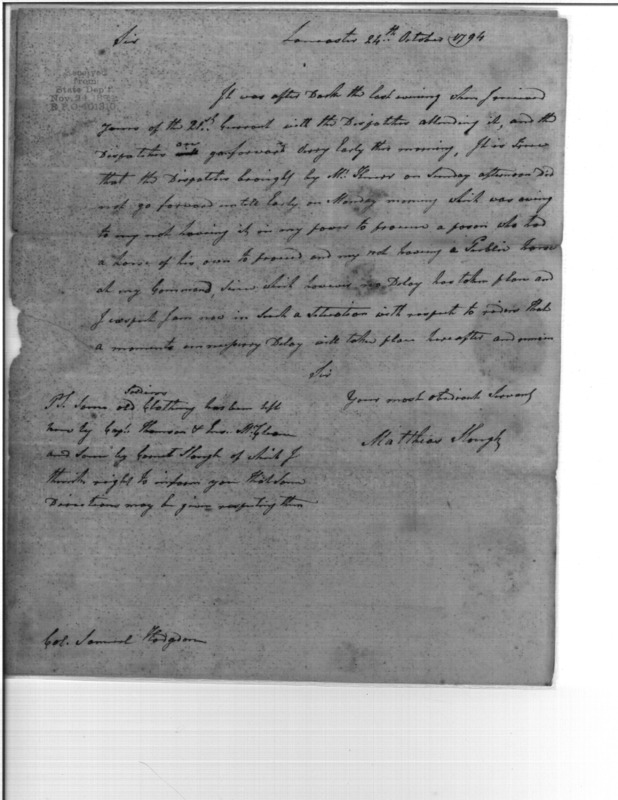 Sir Lancaster 24th October 1794
Received
from
State Dep't.
Nov. 21
It was after Dark the last evening when I received
Yours of the 21st Current with the Dispatches attending it, and the
Dispatches are gone forward very Early this morning, It is true
that the Dispatches brought by Mr. on Sunday afternoon Did
not go forward untill Early on Monday morning which was owing
to my not having it in my power to procure a person who had
a horse of his own to proceed, and my not having a Public horse
at my Command, Since which however no Delay has taken place and
I expect I am now in such a Situation with respect to riders that
a moments unnecessary Delay will take place hereafter and remain
Sir
Your most obedient Servant
Matthias Slough
PS. Some old Clothing has been left
here by Capt. Thomson & Ens. McClean
and Some by Cornet Slough of which I
think right to inform you that Some
Directions may be given respecting them
Col. Samuel Hodgdon